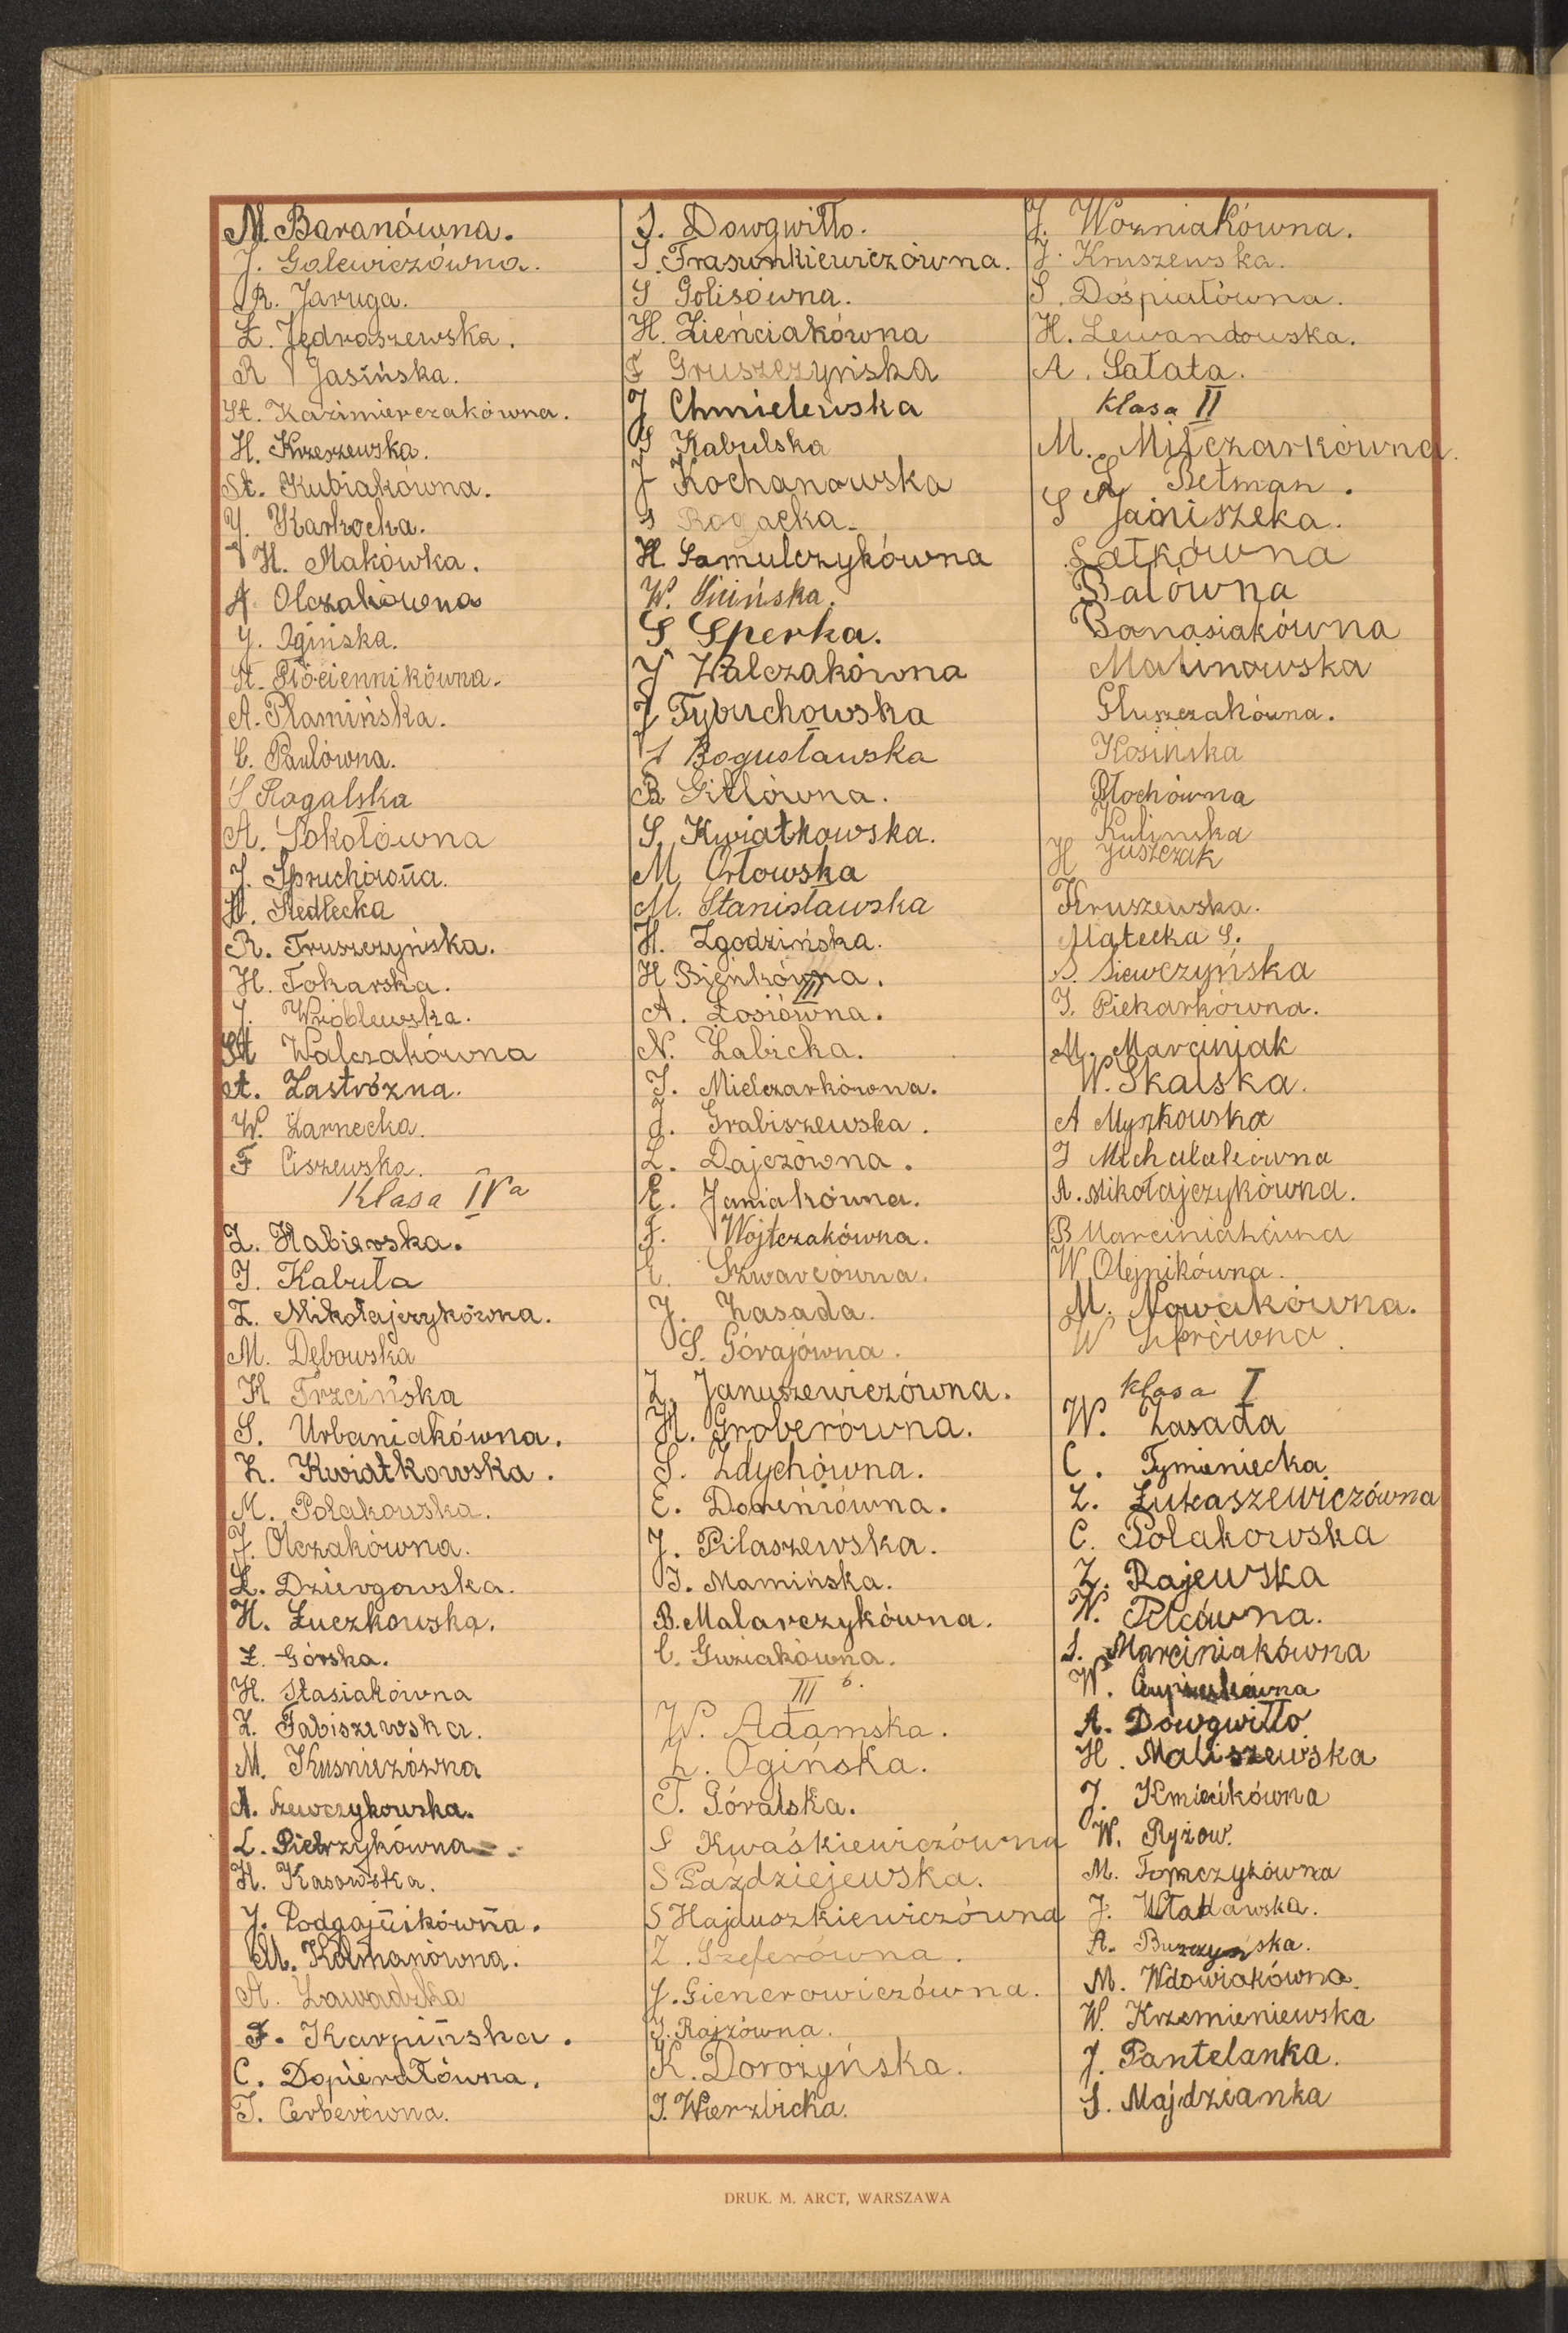 M. Baranówna.
J. Galewiczówna.
R. Jaruga.
Z. Jędraszewska.
R Jasińska.
St. Kazimierczakówna.
H. Krzeszewska.
St. Kubiakówna.
J. Karkocha.
H. Makówka.
A Olczakówna
J. Ogińska.
St. Płóciennikówna.
A. Plamińska.
C. Pawlówna.
S Rogalska
A. Sokołówna
J. Spruchówna.
H. Siedlecka
R. Truszczyńska.
H. Tokarska.
J. Wróblewska.
St Walczakówna
A. Zastróżna.
W. Żarnecka.
F Ciszewska.
Klasa IVa
Z. Habierska.
J. Kabuła
Z. Mikołajczykówna.
M. Dębowska
H Trzcińska
S. Urbaniakówna.
K. Kwiatkowska.
M. Polakowska.
J. Olczakówna.
L. Dziergowska.
H. Łuczkowska.
Z. Górska.
H. Stasiakówna
Z. Fabiszewska.
M. Kuśnierzówna
A. Szewczykowska.
L. Pietrzykówna
H. Kasowska.
J. Podgajnikówna.
M. Kolmanówna.
A. Zawadzka
F. Karpińska.
C. Dopierałówna.
T. Cerberówna.
S. Dowgwiłło.
S. Frasunkiewiczówna.
S Golisówna.
H. Zieńciakówna
F Gruszczyńska
J Chmielewska
S Kabulska
J Kochanowska
S Rogacka.
H. Samulczykówna
W. Sicińska.
S Sperka.
J Walczakówna
J Tybuchowska
J Bogusławska
B Gitlówna.
S. Kwiatkowska.
M. Orłowska
M. Stanisławska
H. Zgodzińska.
H Bieńkówna.
III
A. Łosiówna.
N. Żabicka.
J. Mielczarkówna.
J. Grabiszewska.
L. Dajczówna.
E. Janiakówna.
F. Wojtczakówna.
E. Szwarcówna.
J. Zasada.
S. Górajówna.
Z. Januszewiczówna.
H. Groberówna.
S. Zdychówna.
E. Doreńiówna.
J. Pilaszewska.
J. Mamińska.
B. Malarczykówna.
C. Guziakówna.
III b.
W. Adamska.
L. Ogińska.
T. Góralska.
S Kwaśkiewiczówna
S Paździejewska.
S Hajduszkiewiczówna
Z. Szeferówna.
J. Gienerowiczówna.
J. Rajzówna.
K. Dorożyńska.
J. Wierzbicka.
J. Wozniakówna.
J. Kruszewska.
S. Dośpiałówna.
H. Lewandowska.
A. Sałata.
klasa II
M. Milczarkówna.
L Betman.
S Janiszeka.
Sałkówna
Balówna
Banasiakówna
Malinowska
Głuszczakówna.
Kosińska
Błochówna
Kulinska
H Juszczak
Kruszewska.
Małecka S.
S. Siewczyńska
J. Piekarkówna.
M. Marciniak
W. Skalska.
A Myszkowska
J Michalakówna
A. Mikołajczykówna.
B Marciniakówna
W Olejnikówna.
M. Nowakówna.
W
klasa I
W. Zasada
C. Tymieniecka
Z. Łukaszewiczówna
C. Polakowska
Z. Rajewska
W. Pelcówna.
S. Marciniakówna
W.
A. Dowgwiłło
H. Maliszewska
J. Kmiecikówna
W. Ryżow.
M. Tomczykówna
J. Władawska.
A. Burzyńska.
M. Wdowiakówna.
W. Krzemieniewska
J. Pantelanka.
S. Majdzianka
DRUK. M. ARCT, WARSZAWA